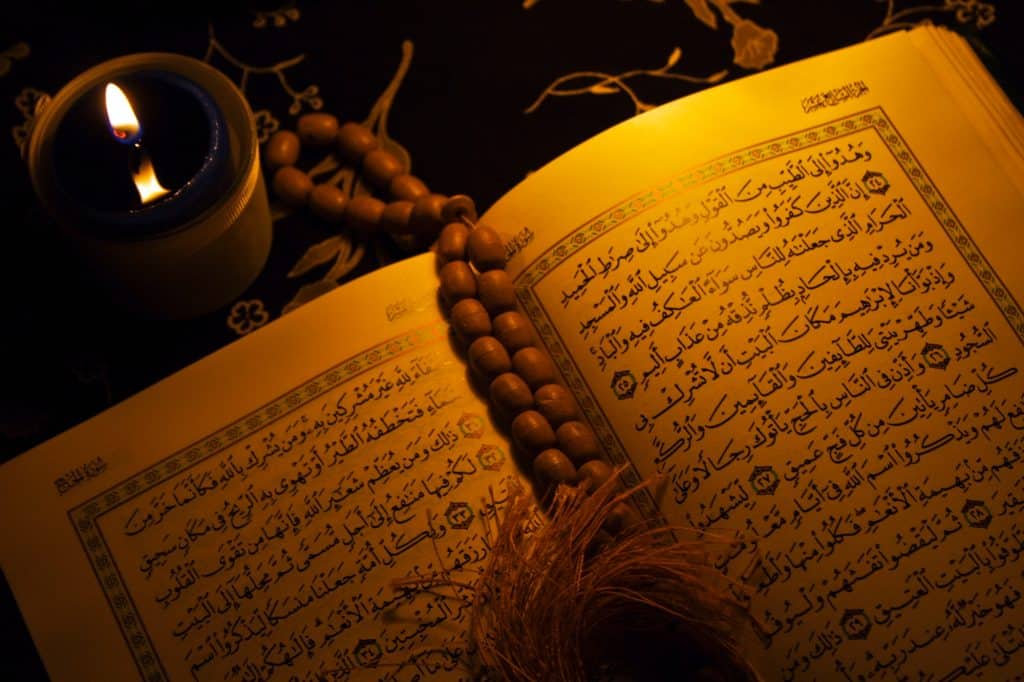 الجزء السابع عشر
وَهُدُوٓا۟ إِلَى ٱلطَّيِّبِ مِنَ ٱلْقَوْلِ وَهُدُوٓا۟ إِلَىٰ صِرَٰطِ ٱلْحَمِيدِ
٢٤ إِنَّ ٱلَّذِينَ كَفَرُوا۟ وَيَصُدُّونَ عَن سَبِيلِ ٱللَّهِ وَٱلْمَسْجِدِ
ٱلْحَرَامِ ٱلَّذِى جَعَلْنَٰهُ لِلنَّاسِ سَوَآءً ٱلْعَٰكِفُ فِيهِ وَٱلْبَادِ
وَمَن يُرِدْ فِيهِ بِإِلْحَادٍۭ بِظُلْمٍ نُّذِقْهُ مِنْ عَذَابٍ أَلِيمٍ ٢٥
وَإِذْ بَوَّأْنَا لِإِبْرَٰهِيمَ مَكَانَ ٱلْبَيْتِ أَن لَّا تُشْرِكْ بِى
شَيْـًٔا وَطَهِّرْ بَيْتِىَ لِلطَّآئِفِينَ وَٱلْقَآئِمِينَ وَٱلرُّكَّعِ
ٱلسُّجُودِ ٢٦ وَأَذِّن فِى ٱلنَّاسِ بِٱلْحَجِّ يَأْتُوكَ رِجَالًا وَعَلَىٰ
كُلِّ ضَامِرٍ يَأْتِينَ مِن كُلِّ فَجٍّ عَمِيقٍ ٢٧ لِّيَشْهَدُوا۟
لَهُمْ وَيَذْكُرُوا۟ ٱسْمَ ٱللَّهِ فِىٓ أَيَّامٍ
مِّنۢ بَهِيمَةِ ٱلْأَنْعَٰمِ فَكُلُوا۟ مِنْهَا
٢٨ ثُمَّ لْيَقْضُوا۟ تَفَثَهُمْ وَلْيُوفُوا۟
بِٱلْبَيْتِ ٱلْعَتِيقِ ٢٩ ذَٰلِكَ وَمَن
فَهُوَ خَيْرٌ لَّهُۥ عِندَ رَبِّهِۦ
سورة الحج
لِلَّهِ غَيْرَ مُشْرِكِينَ بِهِۦ وَمَن يُشْرِكْ بِٱللَّهِ فَكَأَنَّمَا خَرَّ مِنَ
ٱلسَّمَآءِ فَتَخْطَفُهُ ٱلطَّيْرُ أَوْ تَهْوِى بِهِ ٱلرِّيحُ فِى مَكَانٍ سَحِيقٍ
٣١ ذَٰلِكَ وَمَن يُعَظِّمْ شَعَٰٓئِرَ ٱللَّهِ فَإِنَّهَا مِن تَقْوَى ٱلْقُلُوبِ
٣٢ لَكُمْ فِيهَا مَنَٰفِعُ إِلَىٰٓ أَجَلٍ مُّسَمًّى ثُمَّ مَحِلُّهَآ إِلَى ٱلْبَيْتِ
٣٣ وَلِكُلِّ أُمَّةٍ جَعَلْنَا مَنسَكًا لِّيَذْكُرُوا۟ ٱسْمَ
ٱلْأَنْعَٰمِ فَإِلَٰهُكُمْ إِلَٰهٌ
ٱلْمُخْبِتِينَ ٣٤ ٱلَّذِينَ